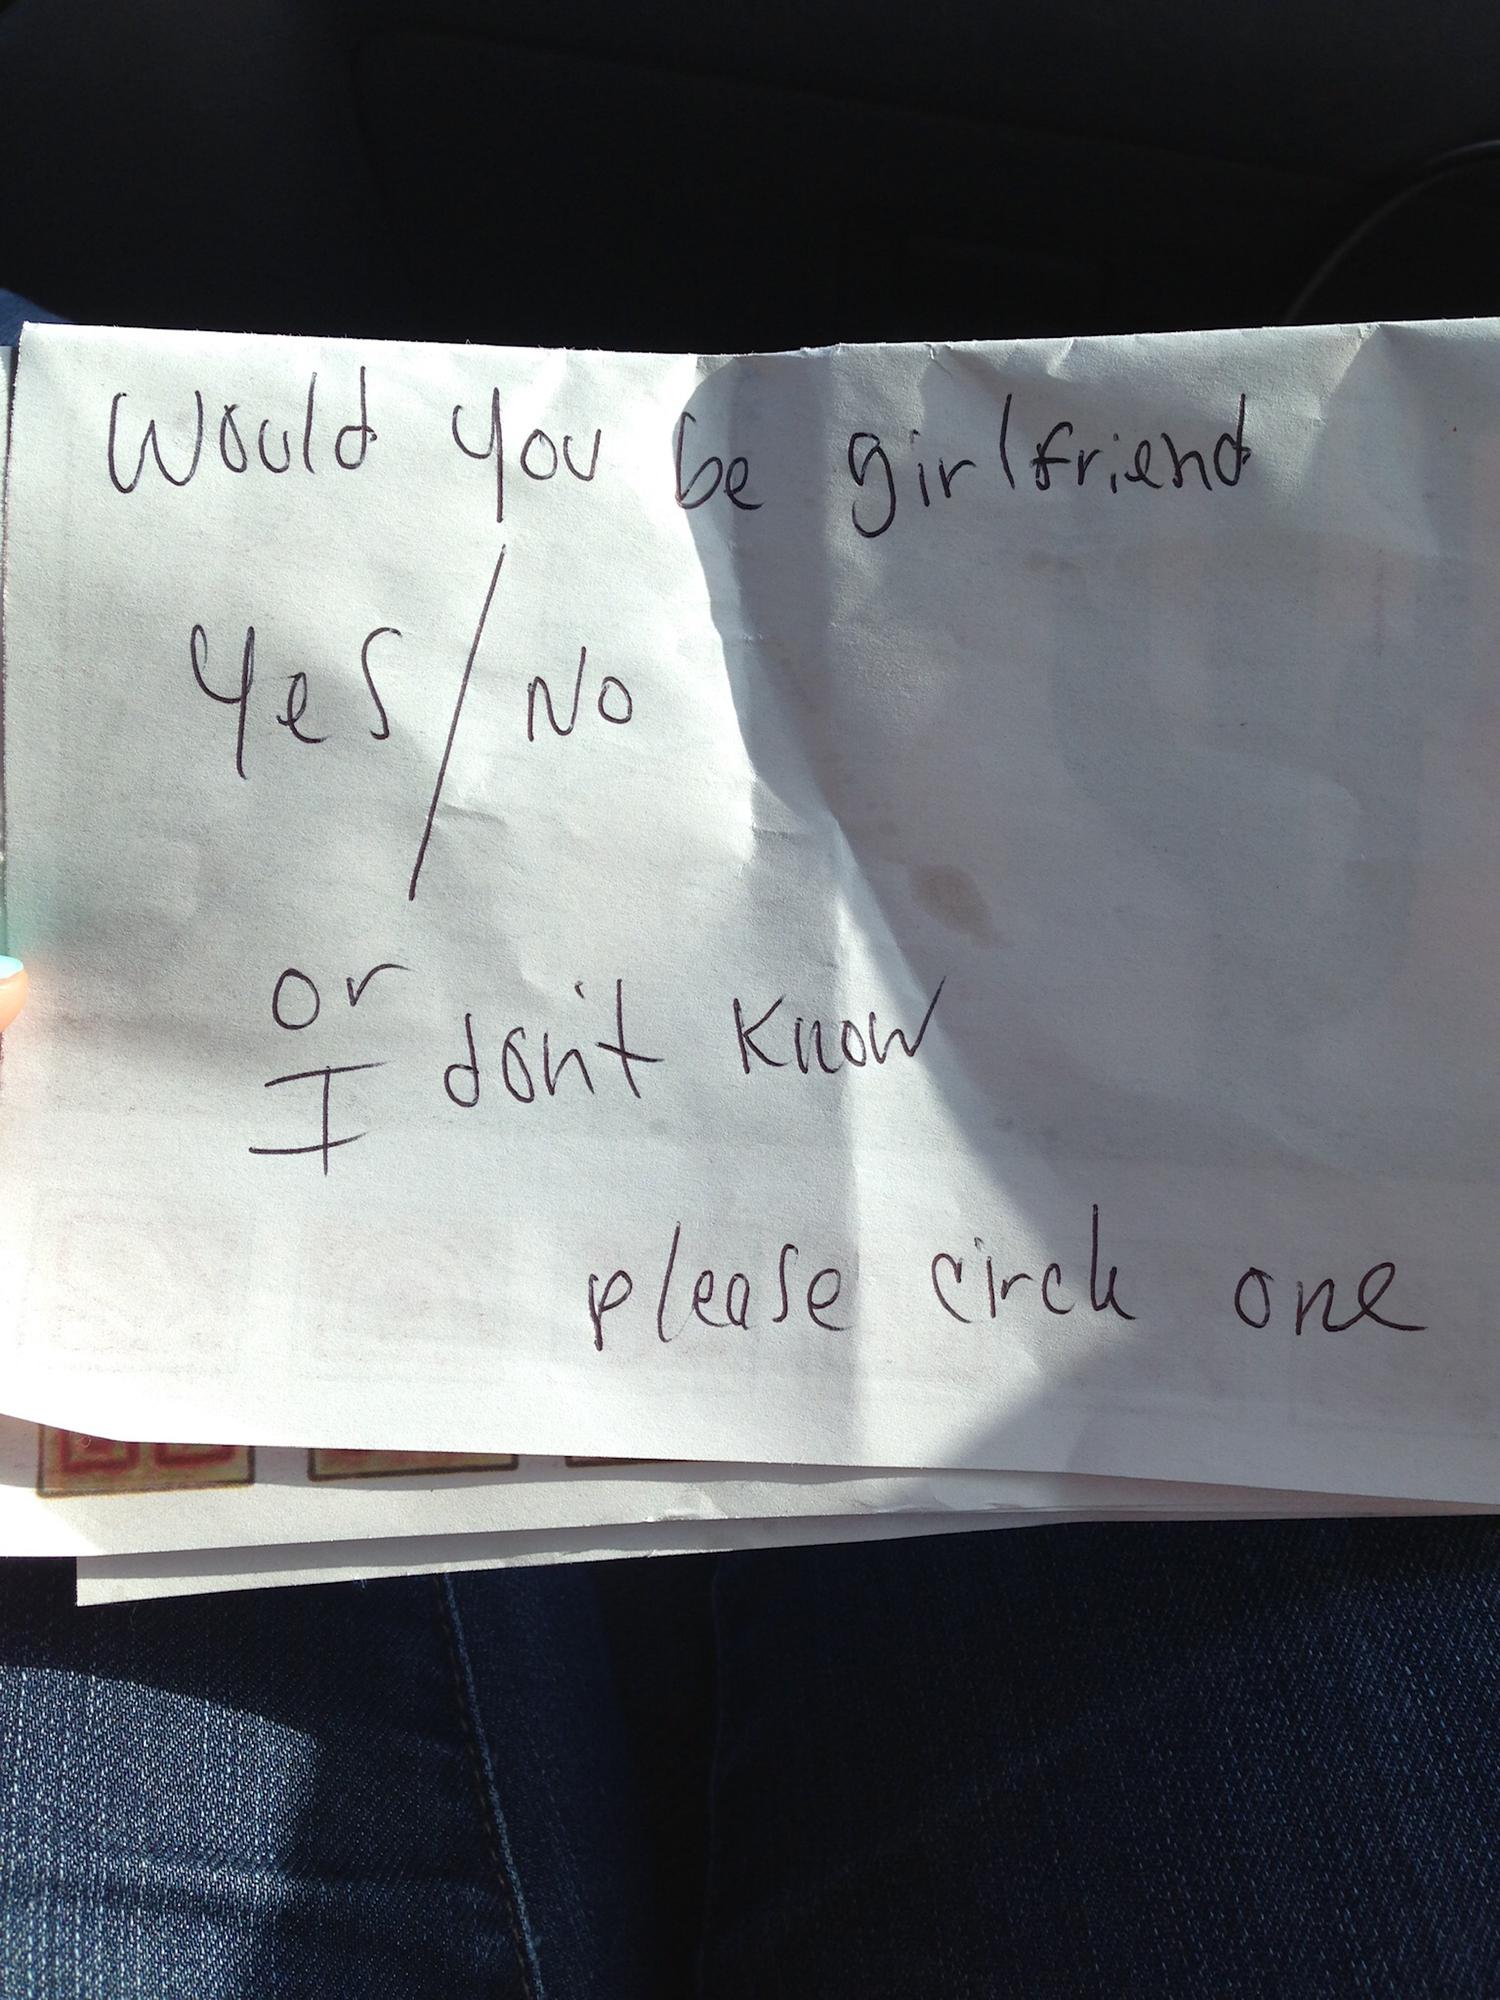 Would you be girlfriend
Yes / No
or
I don't know
please circle one